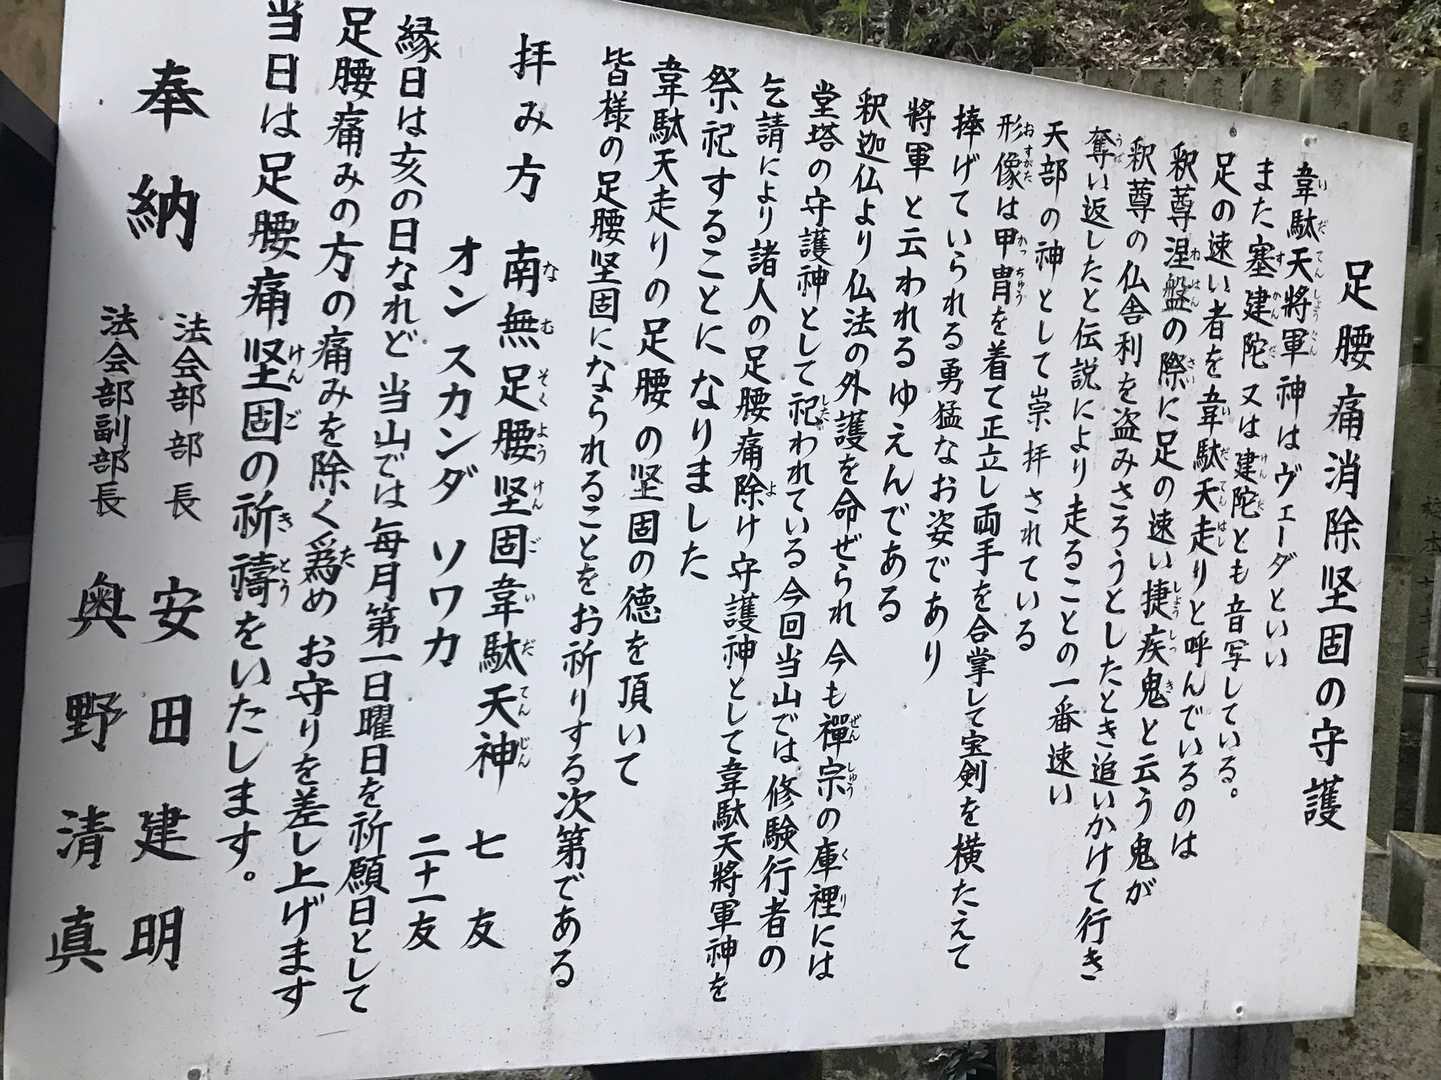 足腰痛消除坚固の守護
韋駄天將軍神はヴェーダといい
また塞建陀又は建陀とも音写している。
足の速い者を韋駄天走りと呼んでいるのは
釈尊涅盤の際に足の速い捷疾鬼と云う鬼が
釈尊の仏舎利を盗みさろうとしたとき追いかけて行き
奪い返したと伝説により走ることの一番速い
天部の神として崇拝されている
形像は甲冑を着て正立し両手を合掌して宝剣を横たえて
捧げていられる勇猛なお姿であり
將軍と云われるゆえんである
釈迦仏より仏法の外護を命ぜられ今も禪宗の庫裡には
堂塔の守護神として祀われている今回当山では修験行者の
乞請により諸人の足腰痛除け守護神として韋駄天將軍神を
祭祀することになりました
韋駄天走りの足腰の坚固の徳を頂いて
皆様の足腰坚固になられることをお祈りする次第である
拝み方 南無足腰坚固韋駄天神 七友
オン スカンダ ソワカ 二十一友
縁日は亥の日なれど当山では毎月第一日曜日を祈願日として
足腰痛みの方の痛みを除く爲めお守りを差し上げます
当日は足腰痛坚固の祈禱をいたします。
奉納 法会部部長 安田建明
法会部副部長 奥野清真